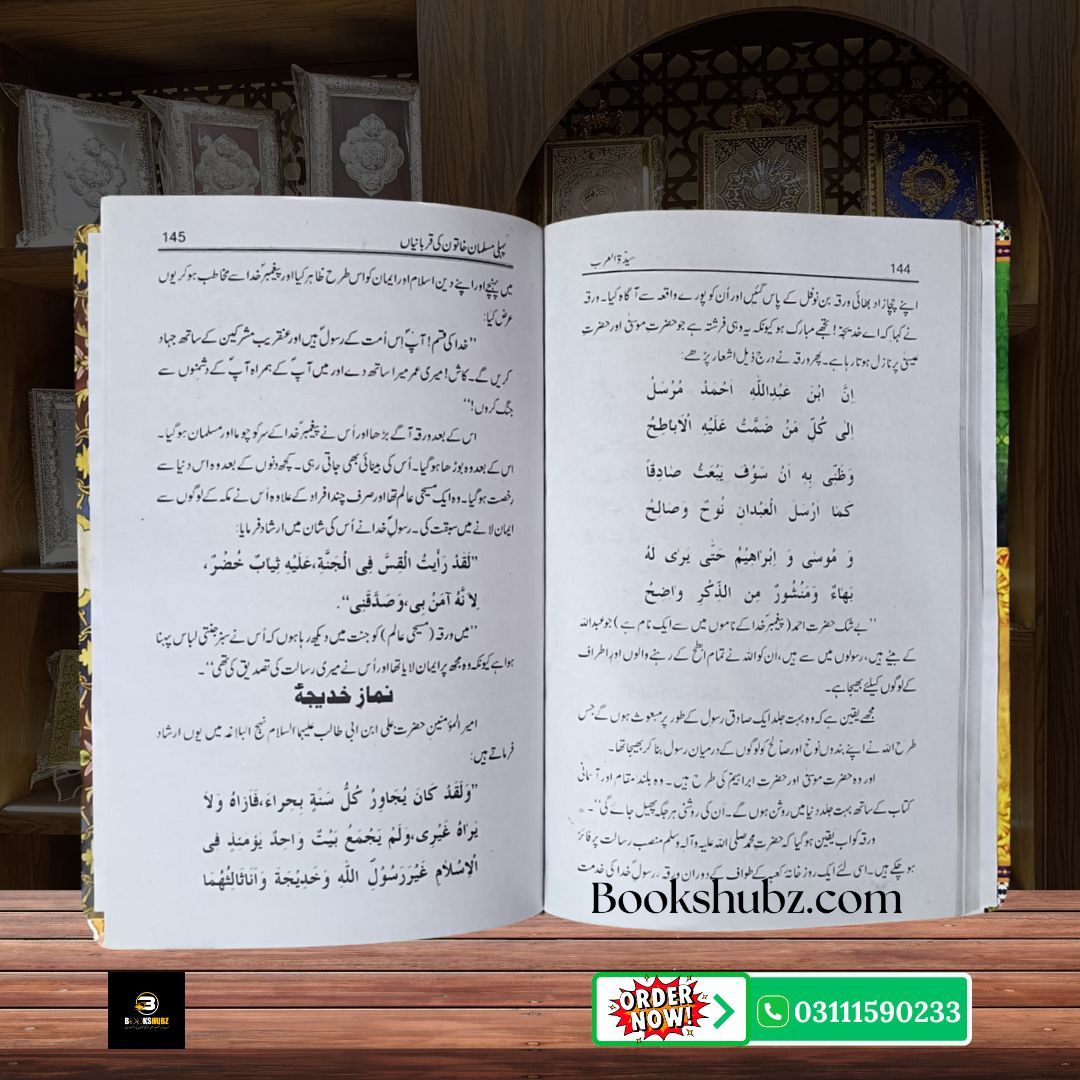 144
سیدۃ العرب
اپنے چچا زاد بھائی ورقہ بن نوفل کے پاس گئیں اور اُن کو پورے واقعہ سے آگاہ کیا۔ ورقہ
نے کہا کہ اے خدیجہؑ! تجھے مبارک ہو کیونکہ یہ وہی فرشتہ ہے جو حضرت موسیٰؑ اور حضرتِ
عیسیٰؑ پر نازل ہوتا رہا ہے۔ پھر ورقہ نے درج ذیل اشعار پڑھے:
اِنَّ ابْنَ عَبْدِاللّٰهِ اَحْمَدُ مُرْسَلُ
اِلٰى كُلِّ مَنْ ضَمَّتْ عَلَيْهِ الْاَبَاطِحُ
وَظَنِّى بِهِ اَنْ سَوْفَ يَبْعَثُ صَادِقًا
كَمَا اَرْسَلَ الْعَبْدَانِ نُوْحٌ وَصَالِحُ
وَ مُوسٰى وَ اِبْرَاهِيْمُ حَتّٰى يَرٰى لَهُ
بَهَاءٌ وَمَنْشُورٌ مِنَ الذِّكْرِ وَاضِحُ
’’بے شک حضرت احمد (پیغمبرؐ خدا کے ناموں میں سے ایک نام ہے) جو عبداللہ
کے بیٹے ہیں، رسولوں میں سے ہیں، ان کو اللہ نے تمام ابطح کے رہنے والوں اور اطراف
کے لوگوں کیلئے بھیجا ہے۔
مجھے یقین ہے کہ وہ بہت جلد ایک صادق رسول کے طور پر مبعوث ہوں گے جس
طرح اللہ نے اپنے بندوں نوحؑ اور صالحؑ کو لوگوں کے درمیان رسول بنا کر بھیجا تھا۔
اور وہ حضرت موسیٰؑ اور حضرت ابراہیمؑ کی طرح ہیں۔ وہ بلند مقام اور آسمانی
کتاب کے ساتھ بہت جلد دنیا میں روشن ہوں گے۔ اُن کی روشنی ہر جگہ پھیل جائے گی‘‘۔
ورقہ کو اب یقین ہو گیا کہ حضرت محمد صلی اللہ علیہ وآلہ وسلم منصب رسالت پر فائز
ہو چکے ہیں۔ اسی لئے ایک روز خانہ کعبہ کے طواف کے دوران ورقہ، رسولؐ خدا کی خدمت
Bookshubz.com
145
پہلی مسلمان خاتون کی قربانیاں
میں پہنچے اور اپنے دین اسلام اور ایمان کو اس طرح ظاہر کیا اور پیغمبرؐ خدا سے مخاطب ہو کر یوں
عرض کیا:
’’خدا کی قسم! آپؐ اِس اُمت کے رسولؐ ہیں اور عنقریب مشرکین کے ساتھ جہاد
کریں گے۔ کاش! میری عمر میرا ساتھ دے اور میں آپؐ کے ہمراہ آپؐ کے دشمنوں سے
جنگ کروں!‘‘
اس کے بعد ورقہ آگے بڑھا اور اُس نے پیغمبرؐ خدا کے سر کو چوما اور مسلمان ہو گیا۔
اس کے بعد وہ بوڑھا ہو گیا۔ اُس کی بینائی بھی جاتی رہی۔ کچھ دنوں کے بعد وہ اس دنیا سے
رخصت ہو گیا۔ وہ ایک مسیحی عالم تھا اور صرف چند افراد کے علاوہ اُس نے مکہ کے لوگوں سے
ایمان لانے میں سبقت کی۔ رسولؐ خدا نے اُس کی شان میں ارشاد فرمایا:
’’لَقَدْ رَأَيْتُ الْقِسَّ فِى الْجَنَّةِ،عَلَيْهِ ثِيَابٌ خُضْرٌ،
لِاَنَّهُ آمَنَ بِى،وَصَدَّقَنِى‘‘.
’’میں ورقہ (مسیحی عالم) کو جنت میں دیکھ رہا ہوں کہ اُس نے سبز جنتی لباس پہنا
ہوا ہے کیونکہ وہ مجھ پر ایمان لایا تھا اور اُس نے میری رسالت کی تصدیق کی تھی‘‘۔
نماز خدیجہؑ
امیر المؤمنین حضرت علی ابن ابی طالب علیہما السلام نہج البلاغہ میں یوں ارشاد
فرماتے ہیں:
’’وَلَقَدْ كَانَ يُجَاوِرُ كُلَّ سَنَةٍ بِحِرَاءَ،فَاَرَاهُ وَلَا
يَرَاهُ غَيْرِى،وَلَمْ يَجْمَعُ بَيْتٌ وَاحِدٌ يَوْمَئِذٍ فِى
الْاِسْلَامِ غَيْرَ رَسُوْلِ اللّٰهِ وَخَدِيْجَةَ وَاَنَا ثَالِثُهُمَا
BOOKSHUBZ
ORDER
NOW!
03111590233